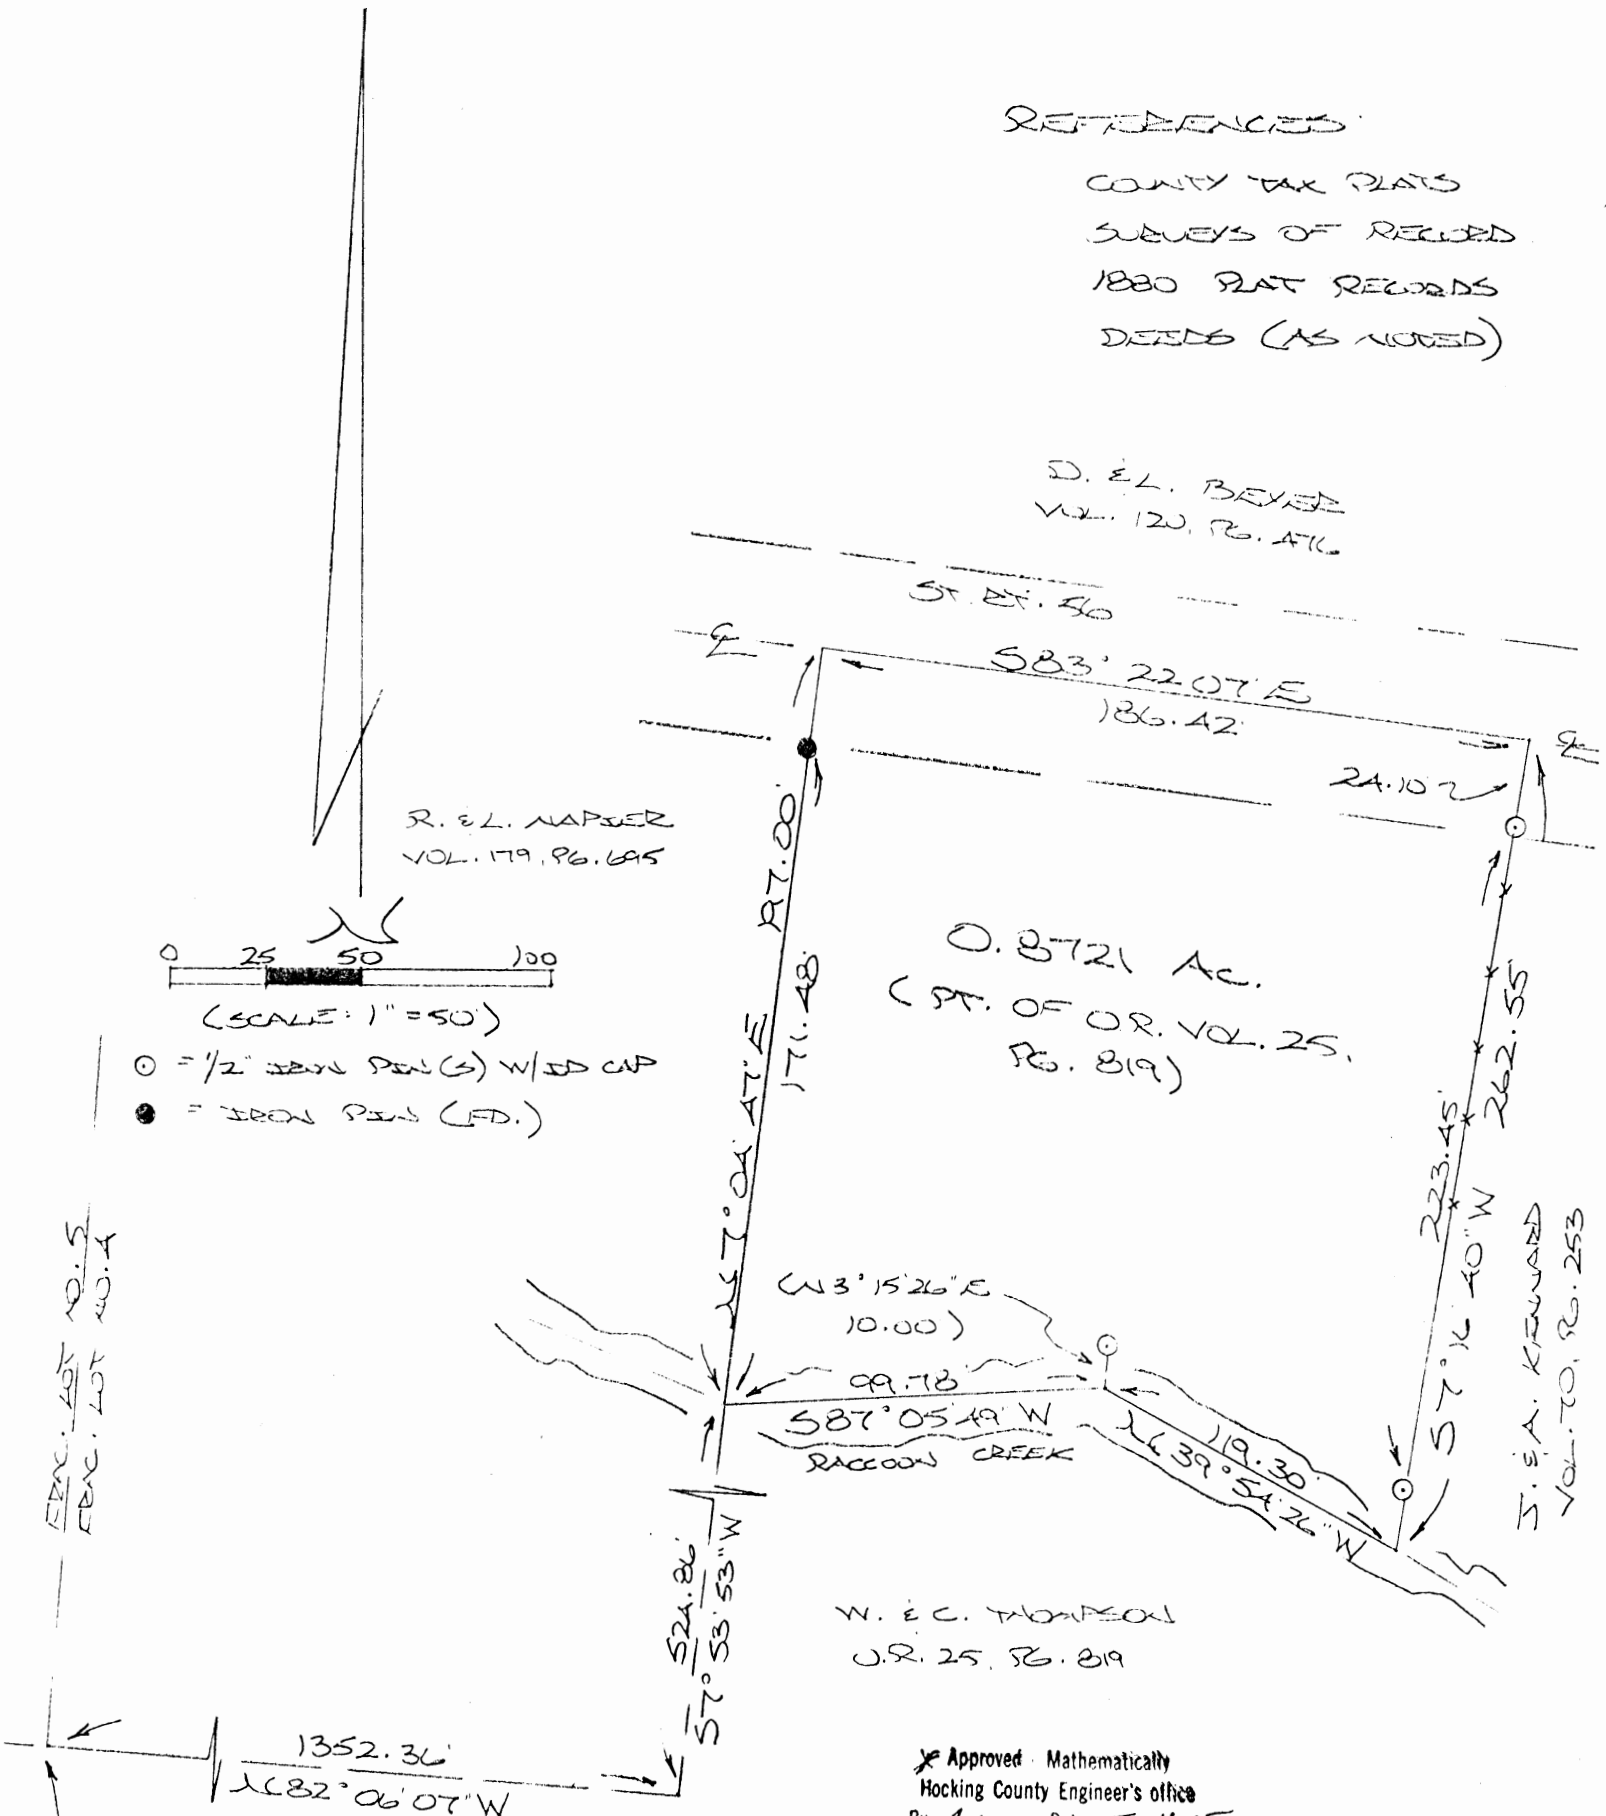 REFERENCES:
COUNTY TAX PLATS
SURVEYS OF RECORD
1880 PLAT RECORDS
DEEDS (AS NOTED)
D. & L. BEYER
VOL. 120, PG. 476
ST. RT. 56
S83°22'07"E
186.42'
24.10'
R. & L. NAPIER
VOL. 179, PG. 695
0 25 50 100
(SCALE: 1"=50')
⊙ = 1/2" IRON PIN(S) W/ID CAP
● = IRON PIN (FD.)
N7°04'47"E 197.00'
171.48'
0.8721 AC.
(PT. OF O.R. VOL. 25,
PG. 819)
262.55'
223.45'
S7°16'40"W
J. & A. KENNARD
VOL. 70, PG. 253
FRAC. LOT NO. 5
FRAC. LOT NO. 4
(N3°15'26"E
10.00')
99.78'
S87°05'49"W
RACCOON CREEK
119.30'
N39°54'26"W
524.86'
S7°53'53"W
W. & C. THOMPSON
O.R. 25, PG. 819
1352.36'
N82°06'07"W
Approved Mathematically
Hocking County Engineer's office